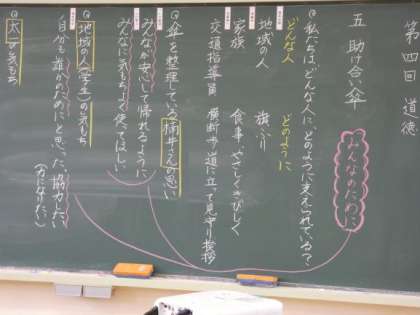 第四回 道徳
五 助け合い傘
みんなのために
◎私たちは、どんな人に、どのように支えられている?
どんな人 どのように
地域の人 旗ふり
家族 食事、やさしくきびしく
交通指導員 横断歩道に立って見守り 挨拶
◎傘を整理している楠井さんの思い
みんなが安心して帰れるように
みんなに気もちよく使ってほしい
◎地域の人(学生)の気もち
自分も誰かのためにと思った、協力したい
(力になりたい)
◎太一の気もち